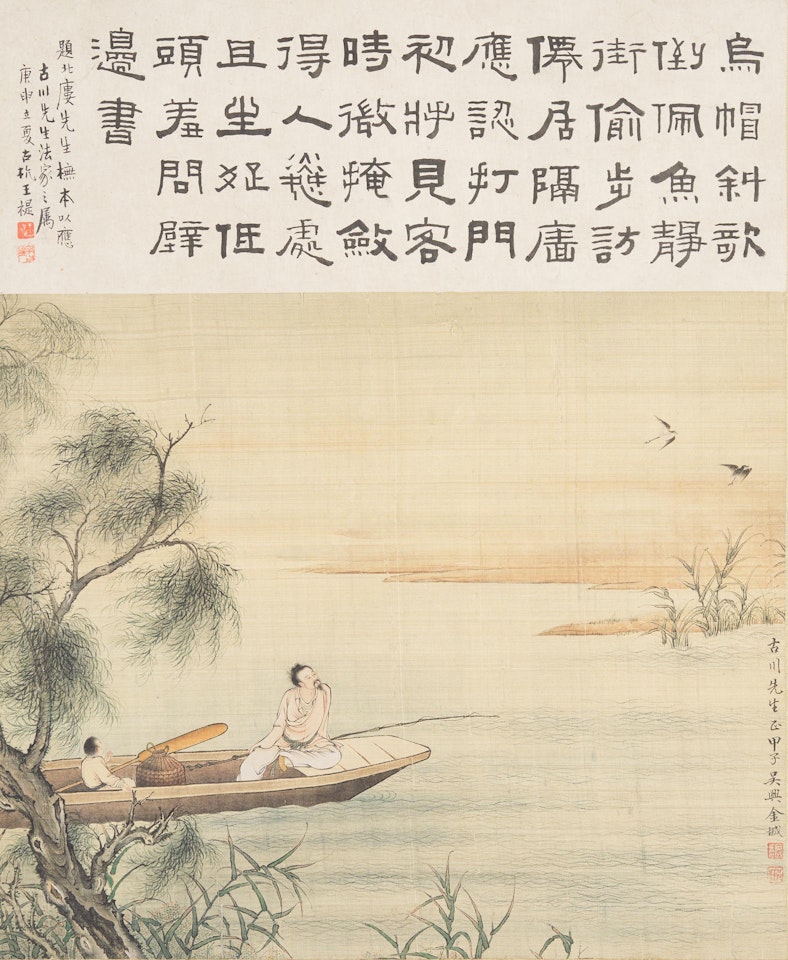 烏帽斜欹
倒佩魚靜
街偷步訪
僊居隔廧
應認打門
初將見客
時微掩斂
得人憐處
且生疏低
頭羞問壁
邊書
題北廔先生橅本以應
古川先生法家之屬
庚申立夏古杭王禔
古川先生正甲子吳興金城